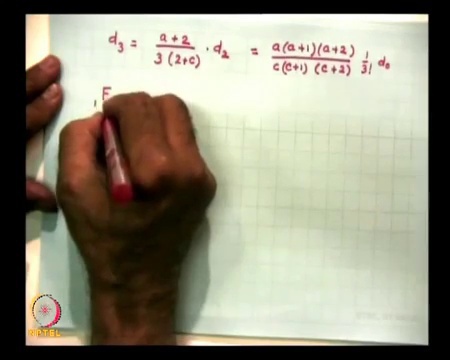 d₃ = (a+2)/(3(2+c)) · d₂ = (a(a+1)(a+2))/(c(c+1)(c+2)) 1/3! d₀
₁F
NPTEL